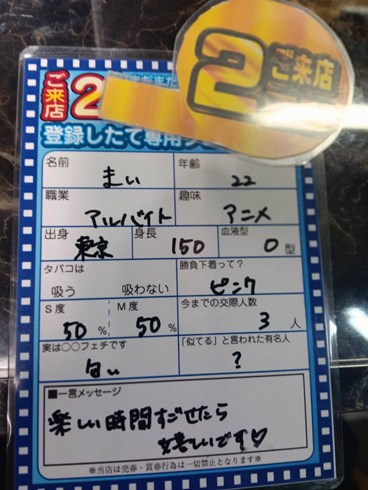 2
ご来店
ご来店
2
登録したて専用
名前
まい
年齢
22
職業
アルバイト
趣味
アニメ
出身
東京
身長
150
血液型
O型
タバコは
吸う 吸わない
勝負下着って？
ピンク
S度
50%
M度
50%
今までの交際人数
3人
実は○○フェチです
匂い
「似てる」と言われた有名人
?
■一言メッセージ
楽しい時間すごせたら
嬉しいです♡
※当店は売春・買春行為は一切禁止となります※